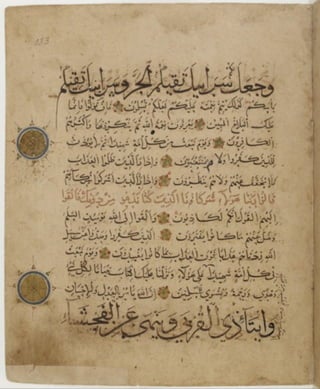 وجعل لكم سرابيل تقيكم الحر وسرابيل تقيكم
بأسكم كذلك يتم نعمته عليكم لعلكم تسلمون فإن تولوا فإنما
عليك البلاغ المبين يعرفون نعمة الله ثم ينكرونها وأكثرهم
الكافرون ويوم نبعث من كل أمة شهيدا ثم لا يؤذن
للذين كفروا ولا هم يستعتبون وإذا رأى الذين ظلموا العذاب
فلا يخفف عنهم ولا هم ينظرون وإذا رأى الذين أشركوا شركاءهم
قالوا ربنا هؤلاء شركاؤنا الذين كنا ندعو من دونك فألقوا
إليهم القول إنكم لكاذبون وألقوا إلى الله يومئذ السلم
وضل عنهم ما كانوا يفترون الذين كفروا وصدوا عن سبيل
الله زدناهم عذابا فوق العذاب بما كانوا يفسدون ويوم نبعث
في كل أمة شهيدا على هؤلاء ونزلنا عليك الكتاب تبيانا لكل شيء
وهدى ورحمة وبشرى للمسلمين إن الله يأمر بالعدل والإحسان
وإيتاء ذي القربى وينهى عن الفحشاء